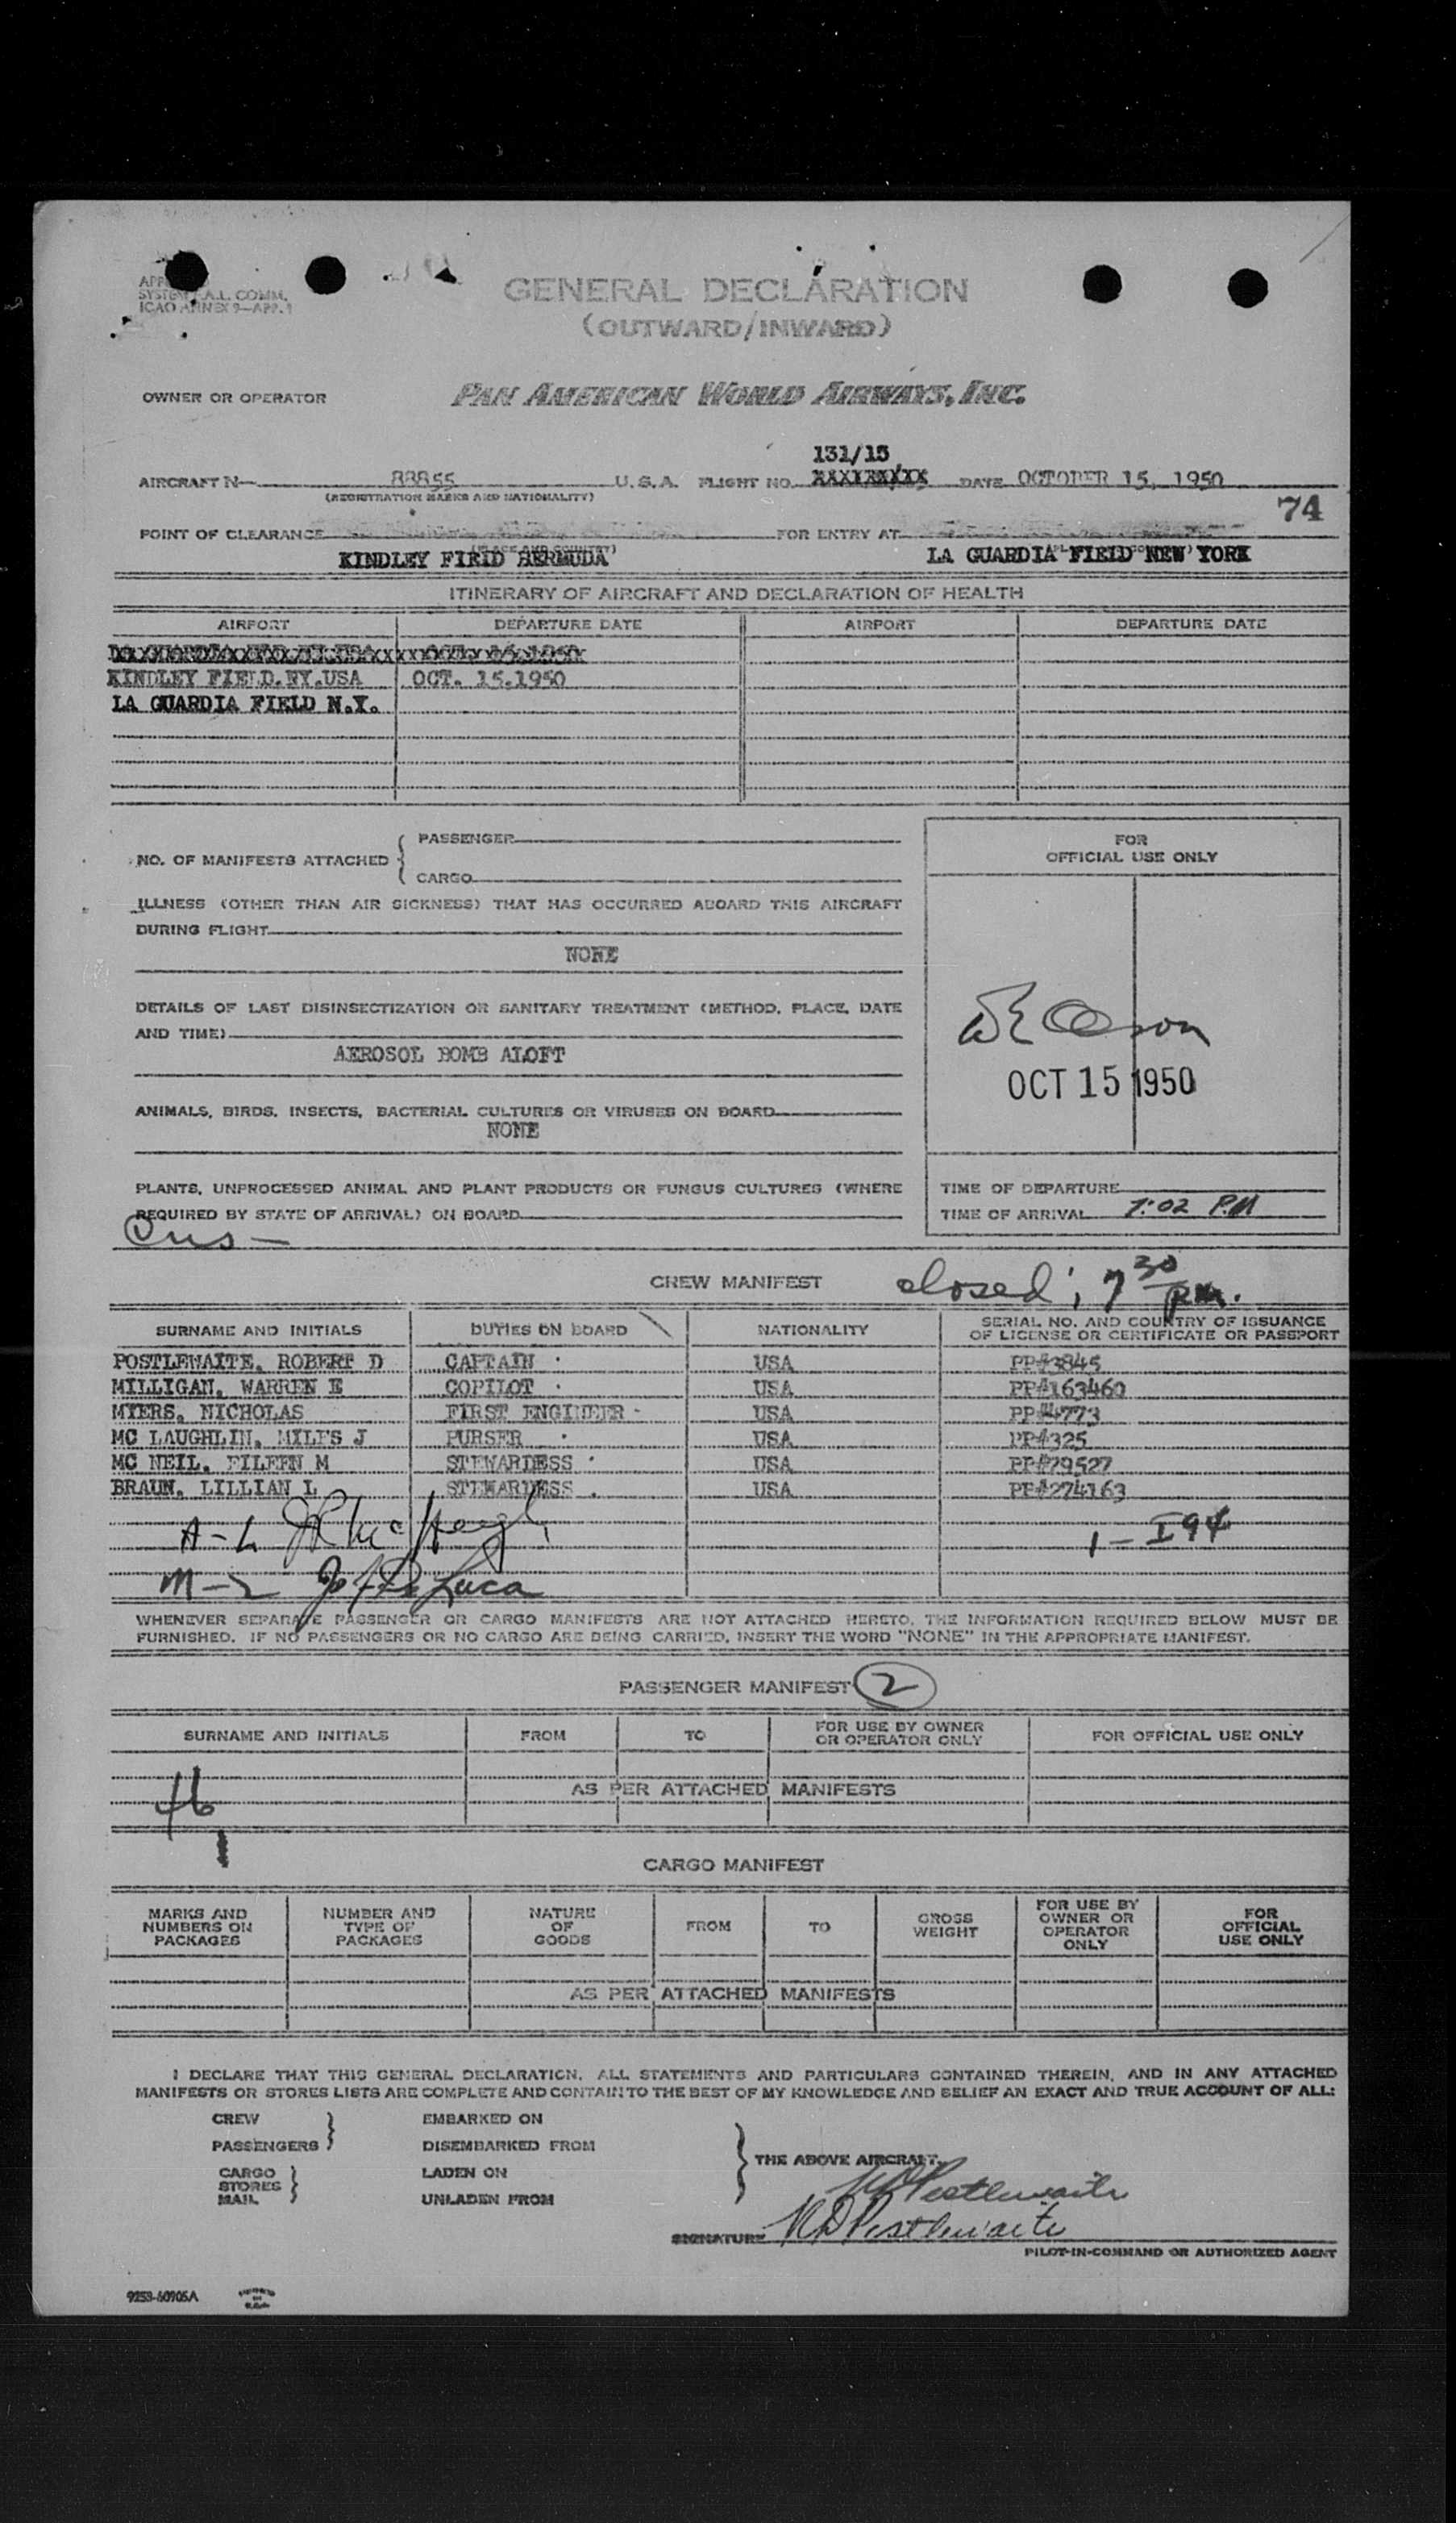 GENERAL DECLARATION
(OUTWARD/INWARD)
SYSTEM P.A.L. COMM.
ICAO ANNEX 9—APP. 1
OWNER OR OPERATOR PAN AMERICAN WORLD AIRWAYS, INC.
131/15
AIRCRAFT N— 88855 U. S. A. FLIGHT NO. DATE OCTOBER 15, 1950
(REGISTRATION MARKS AND NATIONALITY)
74
POINT OF CLEARANCE FOR ENTRY AT
KINDLEY FIELD BERMUDA LA GUARDIA FIELD NEW YORK
ITINERARY OF AIRCRAFT AND DECLARATION OF HEALTH
AIRPORT DEPARTURE DATE AIRPORT DEPARTURE DATE
KINDLEY FIELD.NY.USA OCT. 15.1950
LA GUARDIA FIELD N.Y.
NO. OF MANIFESTS ATTACHED { PASSENGER
CARGO
FOR
OFFICIAL USE ONLY
ILLNESS (OTHER THAN AIR SICKNESS) THAT HAS OCCURRED ABOARD THIS AIRCRAFT
DURING FLIGHT
NONE
DETAILS OF LAST DISINSECTIZATION OR SANITARY TREATMENT (METHOD, PLACE, DATE
AND TIME)
AEROSOL BOMB ALOFT
OCT 15 1950
ANIMALS, BIRDS, INSECTS, BACTERIAL CULTURES OR VIRUSES ON BOARD
NONE
PLANTS, UNPROCESSED ANIMAL AND PLANT PRODUCTS OR FUNGUS CULTURES (WHERE
REQUIRED BY STATE OF ARRIVAL) ON BOARD
TIME OF DEPARTURE
TIME OF ARRIVAL 7:02 P.M
CREW MANIFEST closed; 7 30 pm.
SURNAME AND INITIALS DUTIES ON BOARD NATIONALITY SERIAL NO. AND COUNTRY OF ISSUANCE
OF LICENSE OR CERTIFICATE OR PASSPORT
POSTLEWAITE, ROBERT D CAPTAIN USA PP#3845
MILLIGAN, WARREN E COPILOT USA PP#163460
MYERS, NICHOLAS FIRST ENGINEER USA PP#4773
MC LAUGHLIN, MILES J PURSER USA PP#325
MC NEIL, EILEEN M STEWARDESS USA PP#79527
BRAUN, LILLIAN L STEWARDESS USA PP#274163
A-L
1 - I94
M-2 De Luca
WHENEVER SEPARATE PASSENGER OR CARGO MANIFESTS ARE NOT ATTACHED HERETO, THE INFORMATION REQUIRED BELOW MUST BE
FURNISHED. IF NO PASSENGERS OR NO CARGO ARE BEING CARRIED, INSERT THE WORD "NONE" IN THE APPROPRIATE MANIFEST.
PASSENGER MANIFEST 2
SURNAME AND INITIALS FROM TO FOR USE BY OWNER
OR OPERATOR ONLY FOR OFFICIAL USE ONLY
AS PER ATTACHED MANIFESTS
CARGO MANIFEST
MARKS AND
NUMBERS ON
PACKAGES NUMBER AND
TYPE OF
PACKAGES NATURE
OF
GOODS FROM TO GROSS
WEIGHT FOR USE BY
OWNER OR
OPERATOR
ONLY FOR
OFFICIAL
USE ONLY
AS PER ATTACHED MANIFESTS
I DECLARE THAT THIS GENERAL DECLARATION, ALL STATEMENTS AND PARTICULARS CONTAINED THEREIN, AND IN ANY ATTACHED
MANIFESTS OR STORES LISTS ARE COMPLETE AND CONTAIN TO THE BEST OF MY KNOWLEDGE AND BELIEF AN EXACT AND TRUE ACCOUNT OF ALL:
CREW } EMBARKED ON
PASSENGERS DISEMBARKED FROM
CARGO LADEN ON
STORES
MAIL UNLADEN FROM
} THE ABOVE AIRCRAFT.
RD Postlewaite
SIGNATURE RD Postlewaite
PILOT-IN-COMMAND OR AUTHORIZED AGENT
9253-60905A